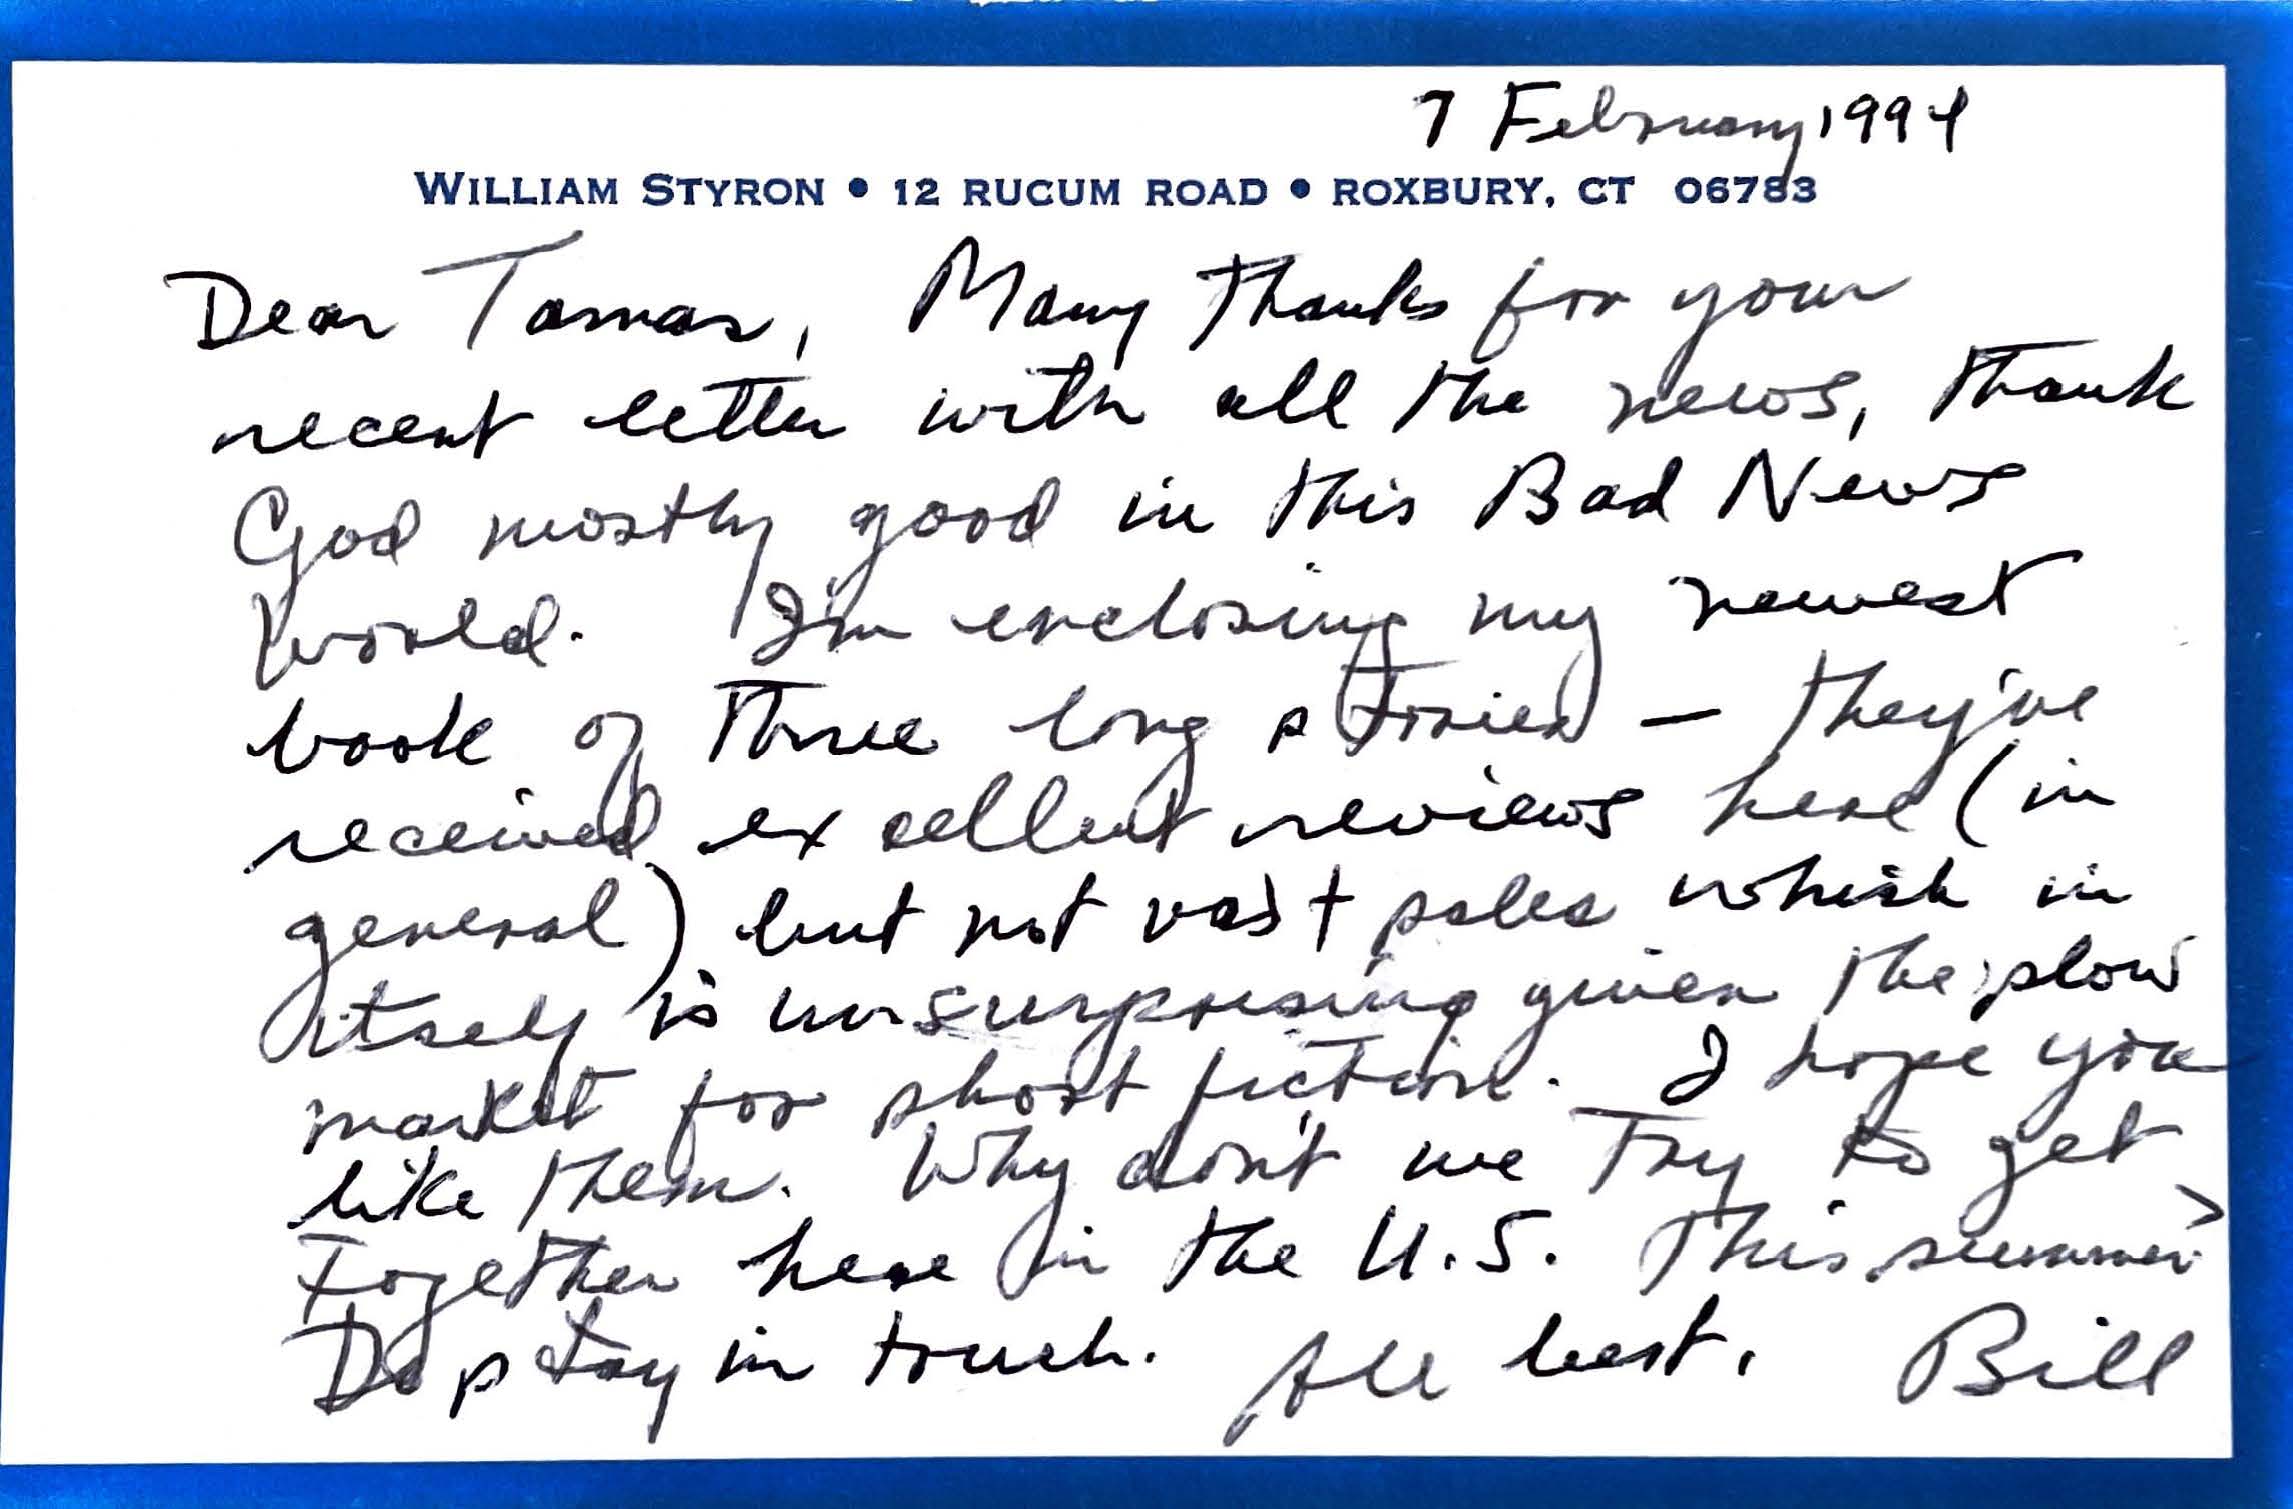 7 February 1994
WILLIAM STYRON • 12 RUCUM ROAD • ROXBURY, CT 06783
Dear Tamas, Many thanks for your
recent letter with all the news, thank
God mostly good in this Bad News
World. I'm enclosing my newest
book of three long stories — they've
received excellent reviews here (in
general) but not vast sales which in
itself is unsurprising given the slow
market for short fiction. I hope you
like them. Why don't we try to get
together here in the U.S. this summer
Do stay in touch. All best, Bill